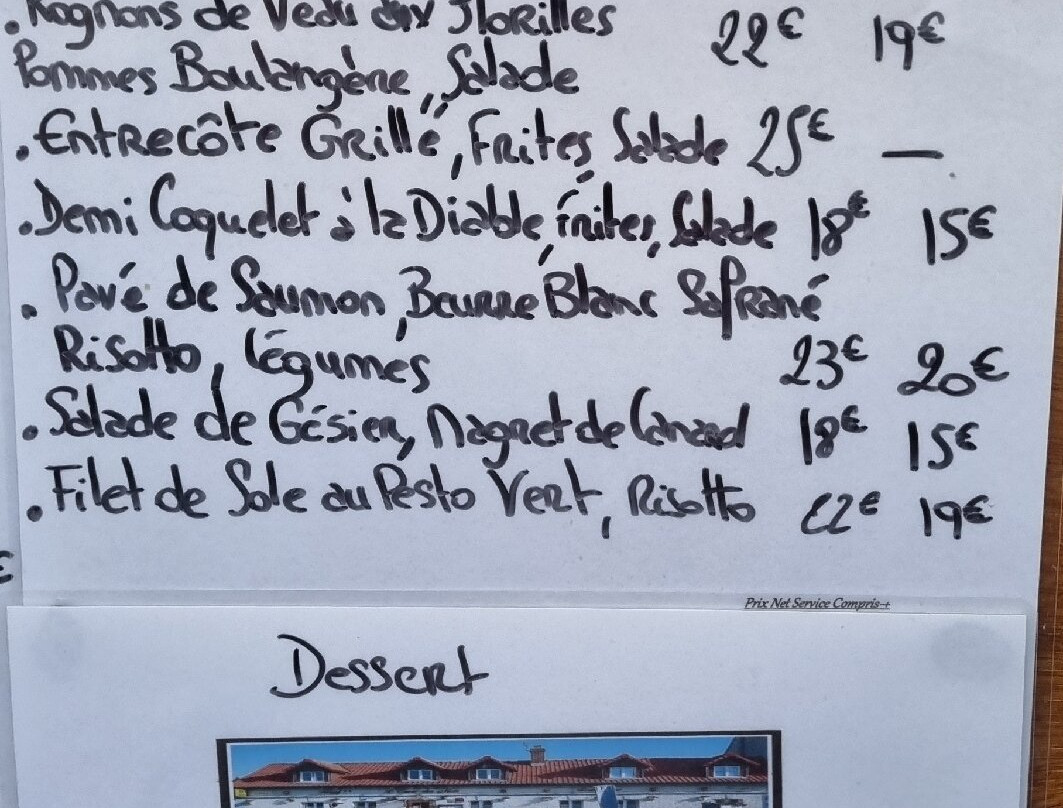 . Rognons de Veau aux Morilles 22€ 19€
Pommes Boulangère, Salade
. Entrecôte Grillé, Frites, Salade 25€ —
. Demi Coquelet à la Diable, Frites, Salade 18€ 15€
. Pavé de Saumon, Beurre Blanc Safrané
Risotto, légumes 23€ 20€
. Salade de Gésier, Magret de Canard 18€ 15€
. Filet de Sole au Pesto Vert, Risotto 22€ 19€
€
Prix Net Service Compris+
Dessert